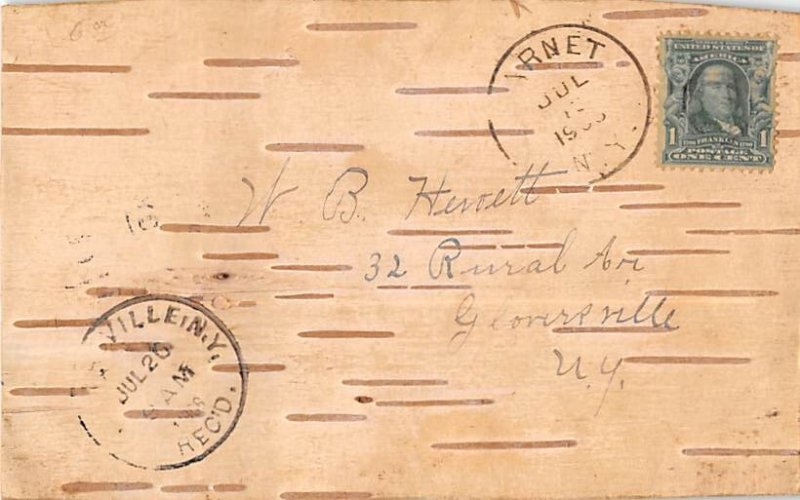 IRNET
JUL
N.Y.
UNITED STATES OF
AMERICA
1 FRANKLIN 1
POSTAGE
ONE CENT
W B. Hewett
32 Rural Av
Gloversville
N.Y.
VILLE N.Y.
JUL 20
AM
REC'D.